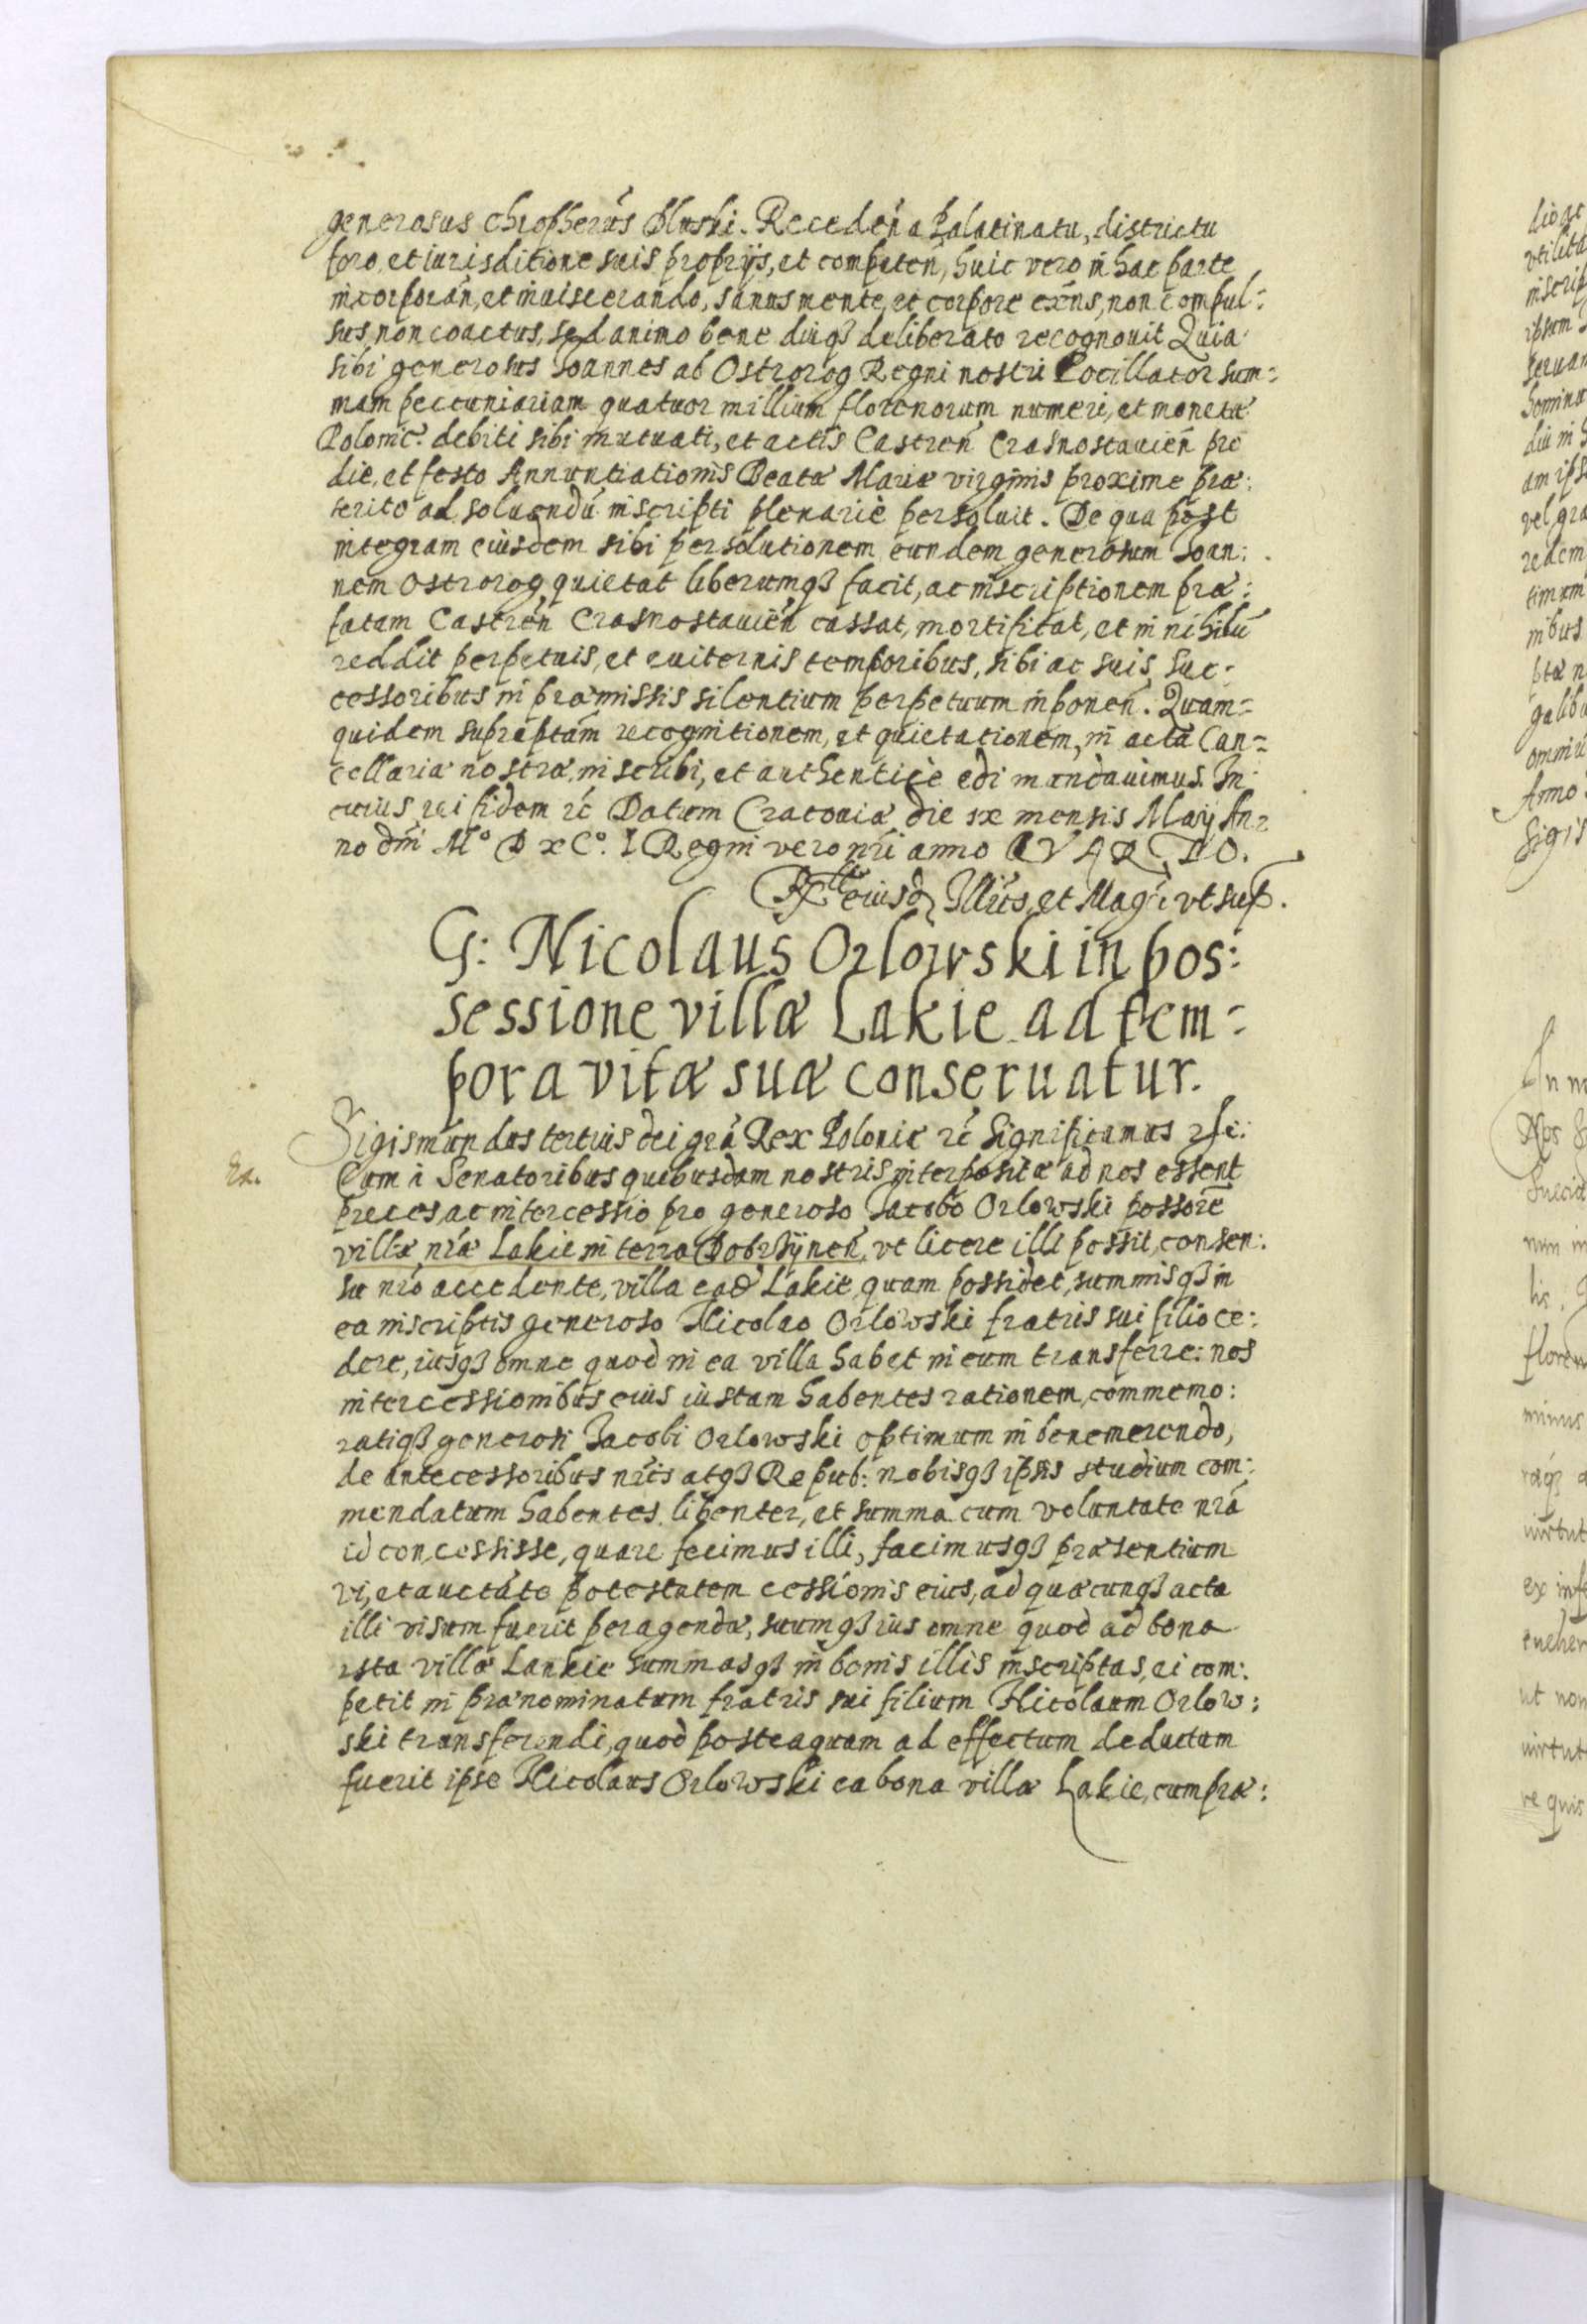 generosus Chropherús Dluski. Recedeń a Palatinatu, districtu
foro, et iurisditione suis proprijs, et competeń, huic vero in hac parte
incorporań, et inuiscerando, sanus mente, et corpore exńs, non compul:
sus, non coactus, sed animo bene diuqz deliberato recognouit Quia
sibi generosus Joannes ab Ostrorog Regni nostri Pocillator sum:
mam pecuniariam quatuor millium florenorum numeri, et monetæ
Polonic. debiti sibi mutuati, et actis Castreń Crasnostauień pro
die, et festo Annuntiationis Beatæ Mariæ virginis proxime præ:
terito ad soluendú inscripti plenariè persoluit. De qua post
integram eiusdem sibi persolutionem eundem generosum Joan:
nem Ostrorog quietat liberumqz facit, ac inscriptionem præ:
fatam Castreń Crasnostauień cassat, mortificat, et in nihilú
reddit perpetuis, et euiternis temporibus, sibi ac suis suc:
cessoribus in præmissis silentium perpetuum inponeń. Quam=
quidem supraptám recognitionem, et quietationem, in acta Can=
cellariæ nostræ inscribi, et authenticè edi mandauimus. In
cuius rei fidem rć Datum Cracouiæ die ix mensis Maij An=
no dńi Mº D xCº. I Regni vero nŕi anno QVARTO.
Rtto eiusd Illŕis, et Magci vt sup.
G: Nicolaus Orlowski in pos:
sessione villæ Lakie ad tem=
pora vitæ suæ conseruatur.
Sigismundus tertius dei grá Rex Poloniæ rć Significamus rc:
Ex.
Cum à Senatoribus quibusdam nostris interpositæ ad nos essent
preces, ac intercessio pro generoso Jacobo Orlowski possore
villæ nŕæ Lakie in terra Dobrzÿneń, vt licere illi possit, consen:
su nŕo accedente, villa ead Lakie, quam possidet, summisqz in
ea inscriptis generoso Nicolao Orlowski fratris sui filio ce:
dere, iusqz omne quod in ea villa habet in eum transferre: nos
intercessionibus eius iustam habentes rationem, commemo:
ratiqz generosi Jacobi Orlowski optimum in benemerendo,
de antecessoribus nŕis atqz Repub: nobisqz ipsis studium com:
mendatum habentes, libenter, et summa cum voluntate nŕá
id concessisse, quare fecimus illi, facimusqz præsentium
vi, et auctáte potestatem cessionis eius, ad quæcunqz acta
illi visum fuerit peragendæ, suumqz ius omne quod ad bona
ista villæ Lankie summasqz in bonis illis inscriptas, ei com:
petit in prænominatum fratris sui filium Nicolaum Orlow:
ski transferendi, quod posteaquam ad effectum deductum
fuerit ipse Nicolaus Orlowski ea bona villæ Lakie, cum præ: